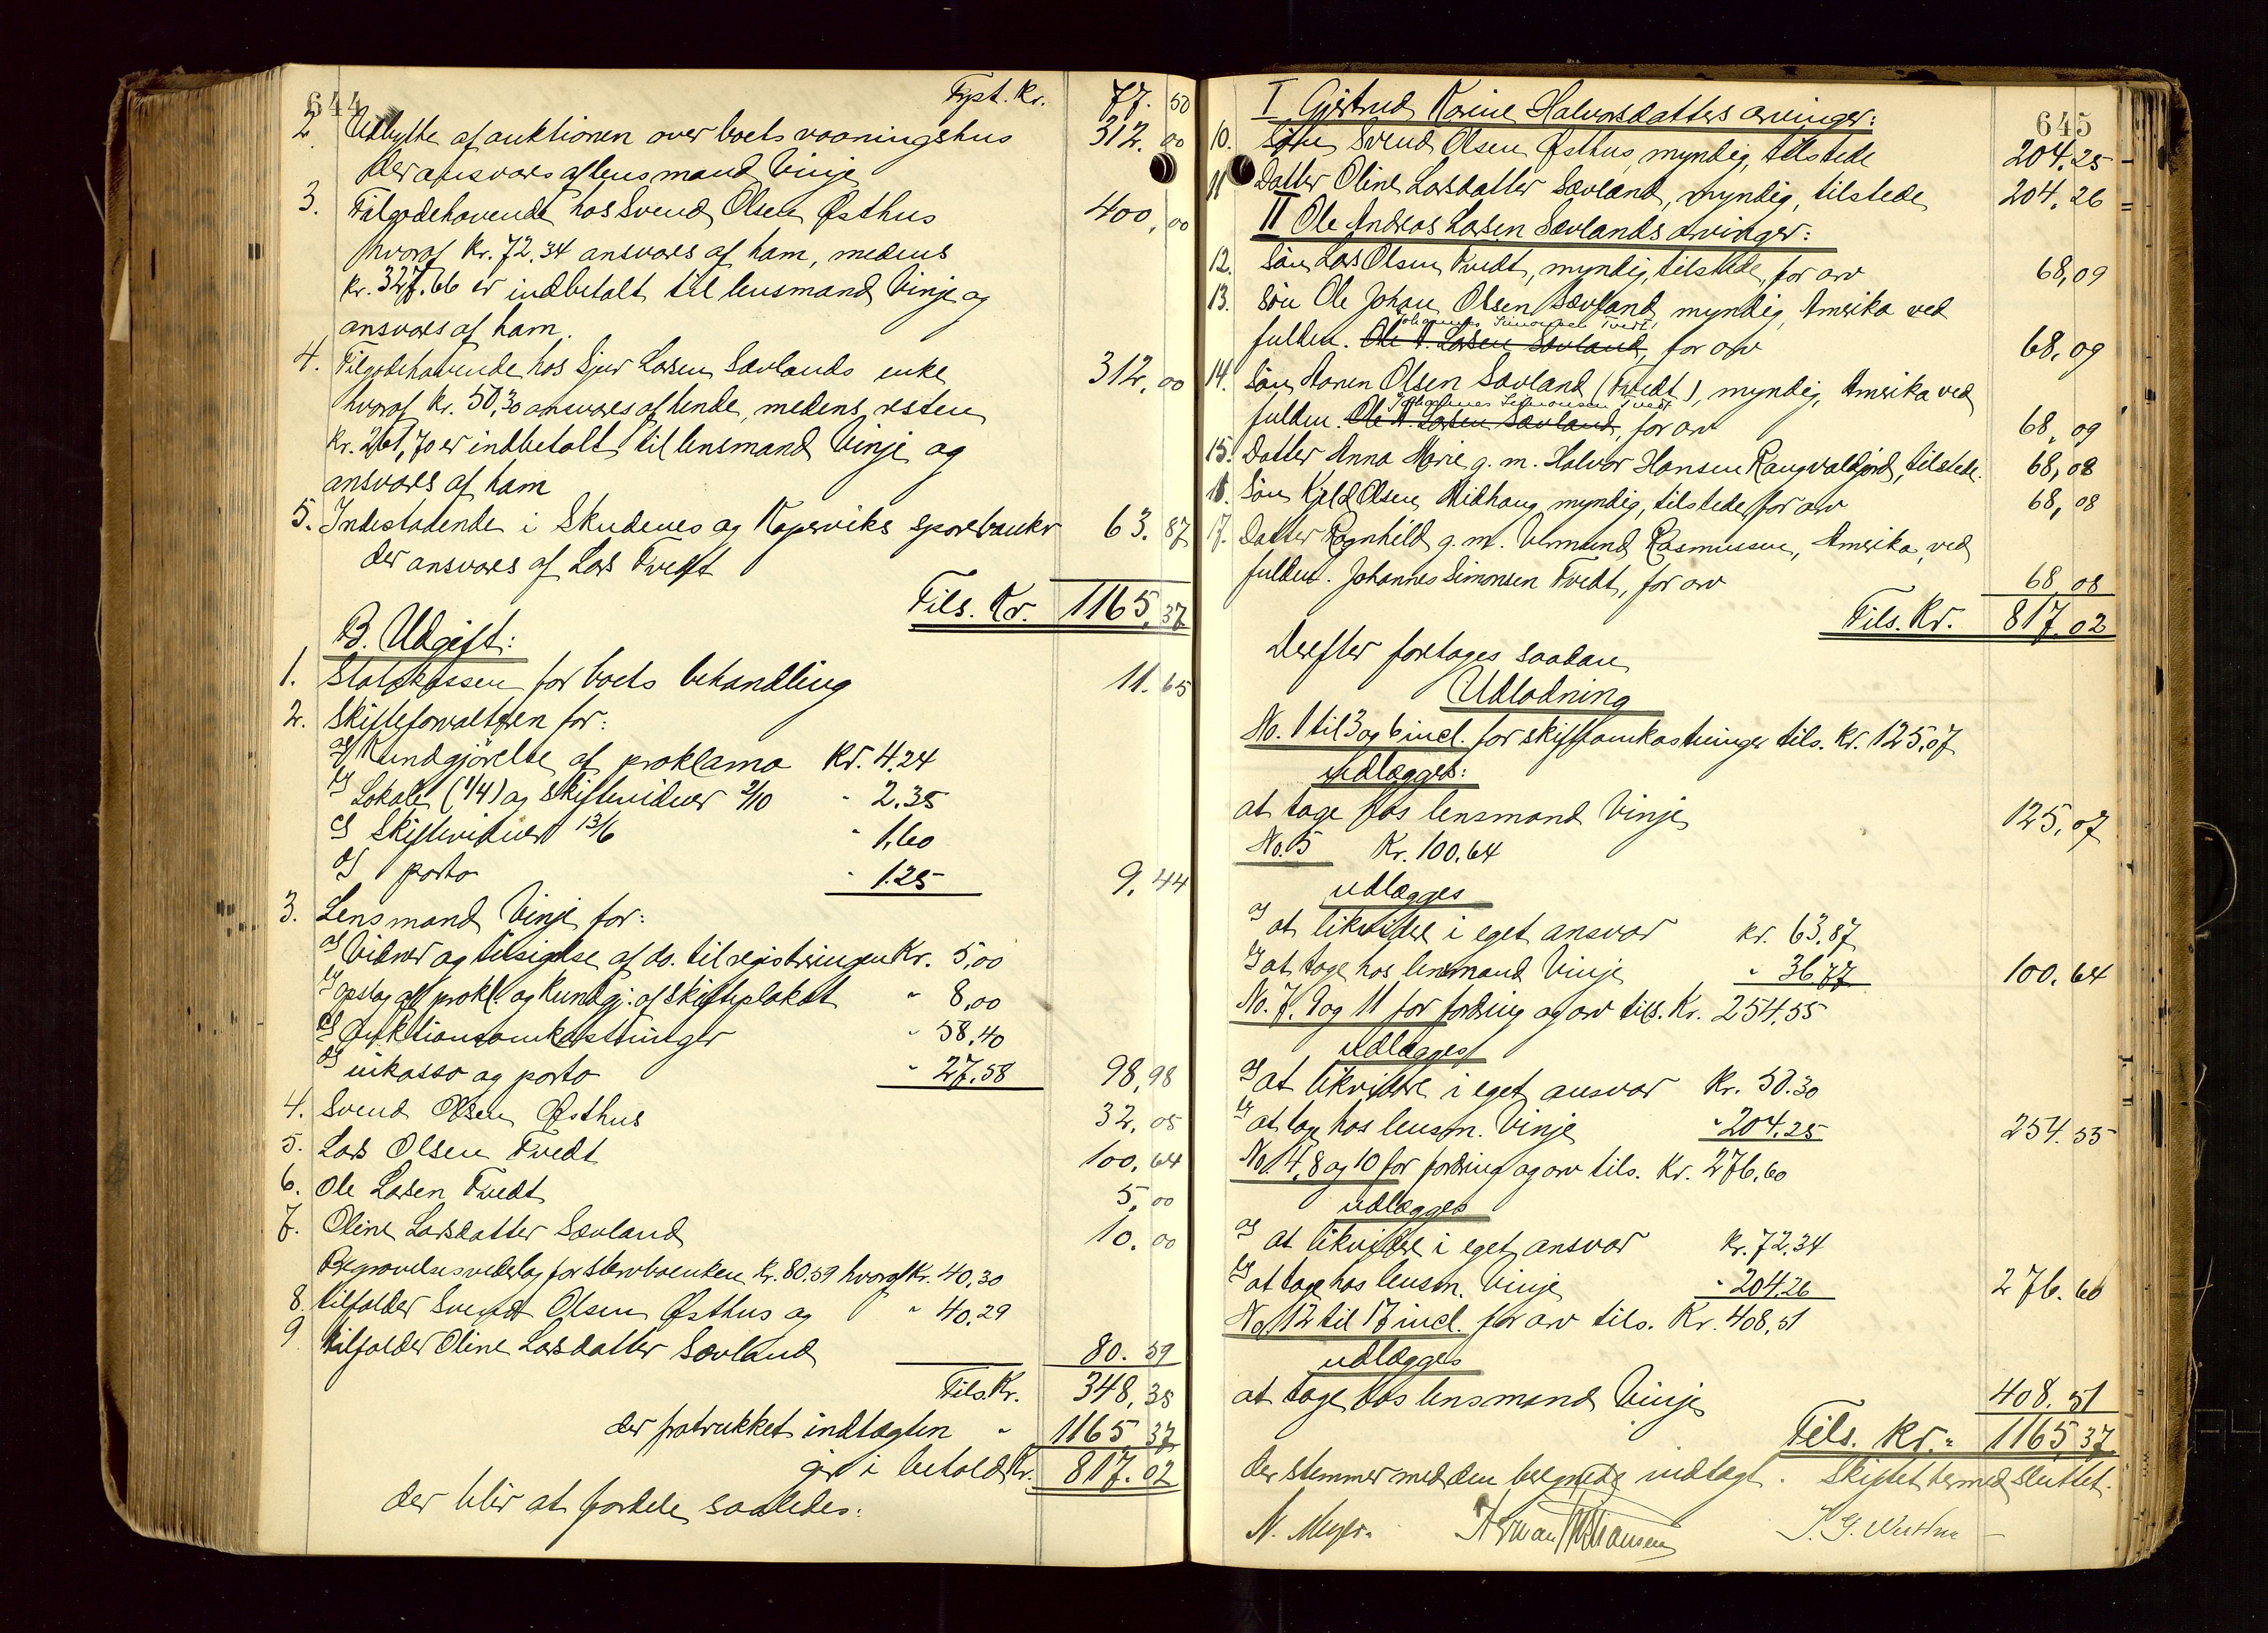 644
Trpt. Kr. 77. 50
2. Udbytte af auktionen over boets vaaningshus 312. 00
der ansvares af lensmand Vinje
3. Tilgodehavende hos Svend Olsen Østhus 400, 00
hvoraf Kr. 72.34 ansvares af ham, medens
Kr. 327.66 er indbetalt til lensmand Vinje og
ansvares af ham.
4. Tilgodehavende hos Sjur Larsen Sævlands enke 312, 00
hvoraf Kr. 50,30 ansvares af hende, medens resten
Kr. 261,70 er indbetalt til lensmand Vinje og
ansvares af ham
5. Indestaaende i Skudenes og Koperviks sparebanker 63. 87
der ansvares af Lars Tvedt
Tils. Kr. 1165, 37
B. Udgift:
1. Statskassen for boets behandling 11. 65
2. Skifteforvalteren for:
a) Kundgjørelse af proklama Kr. 4.24
b) Lokale (1/4) og skiftevidner 2/10 " 2.35
c) Skiftevidner 13/6 " 1,60
d) porto " 1.25 9, 44
3. Lensmand Vinje for:
a) Vidner og tilsigelse af do. til registreringen Kr. 5,00
b) Opslag af prokl. og kundgj. af skifteplakat " 8,00
c) Auktionsomkostninger " 58,40
d) inkasso og porto " 27.58 98, 98
4. Svend Olsen Østhus 32, 05
5. Lars Olsen Tvedt 100, 64
6. Ole Larsen Tvedt 5, 00
7. Oline Larsdatter Sævland 10. 00
Begravelsesvederlag for stervboenken Kr. 80.59 hvoraf Kr. 40,30
8. tilfalder Svend Olsen Østhus og " 40.29
9. tilfalder Oline Larsdatter Sævland 80. 59
Tils. Kr. 348, 35
der fratrukket indtægten " 1165 37
gir i behold Kr. 817. 02
der blir at fordele saaledes:
645
I Gjertrud Karine Halvorsdatters arvinger:
10. Søn Svend Olsen Østhus, myndig, tilstede 204.25
11 Datter Oline Larsdatter Sævland, myndig, tilstede 204.26
II Ole Andreas Larsen Sævlands arvinger:
12. Søn Lars Olsen Tvedt, myndig, tilstede, for arv 68,09
13. Søn Ole Johan Olsen Sævland, myndig, Amerika ved
Johannes Simonsen Tvedt,
fuldm. Ole A. Larsen Sævland, for arv 68,09
14. Søn Aamen Olsen Sævland (Tvedt), myndig, Amerika ved
Johannes Simonsen Tvedt
fuldm. Ole A. Larsen Sævland, for arv 68,09
15. Datter Anna Marie g. m. Halvor Hansen Rangvaldjord, tilstede. 68,08
16. Søn Kjeld Olsen Midhaug myndig, tilstede for arv 68,08
17. Datter Ragnhild g. m. Vermund Rasmussen, Amerika, ved
fuldm. Johannes Simonsen Tvedt, for arv 68,08
Tils. Kr. 817.02
Derefter foretages saadan
Udlodning
No. 1 til 3 og 6 incl. for skifteomkostninger tils. Kr. 125,07
udlægges:
at tage hos lensmand Vinje 125,07
No. 5 Kr. 100.64
udlægges
a) at likvidere i eget ansvar Kr. 63.87
b) at tage hos lensmand Vinje " 36.77 100.64
No. 7. 9 og 11 for fordring og arv tils. Kr. 254.55
udlægges
a) at likvidere i eget ansvar Kr. 50.30
b) at tage hos lensm. Vinje " 204.25 254.55
No. 4, 8 og 10 for fordring og arv tils. Kr. 276,60
udlægges
a) at likvidere i eget ansvar Kr. 72.34
b) at tage hos lensm. Vinje " 204.26 276.60
No. 12 til 17 incl. for arv tils. Kr. 408,51
udlægges
at tage hos lensmand Vinje 408.51
Tils. Kr. " 1165,37
der stemmer med den beregnede indtægt. Skiftet hermed sluttet.
N. Meyer.